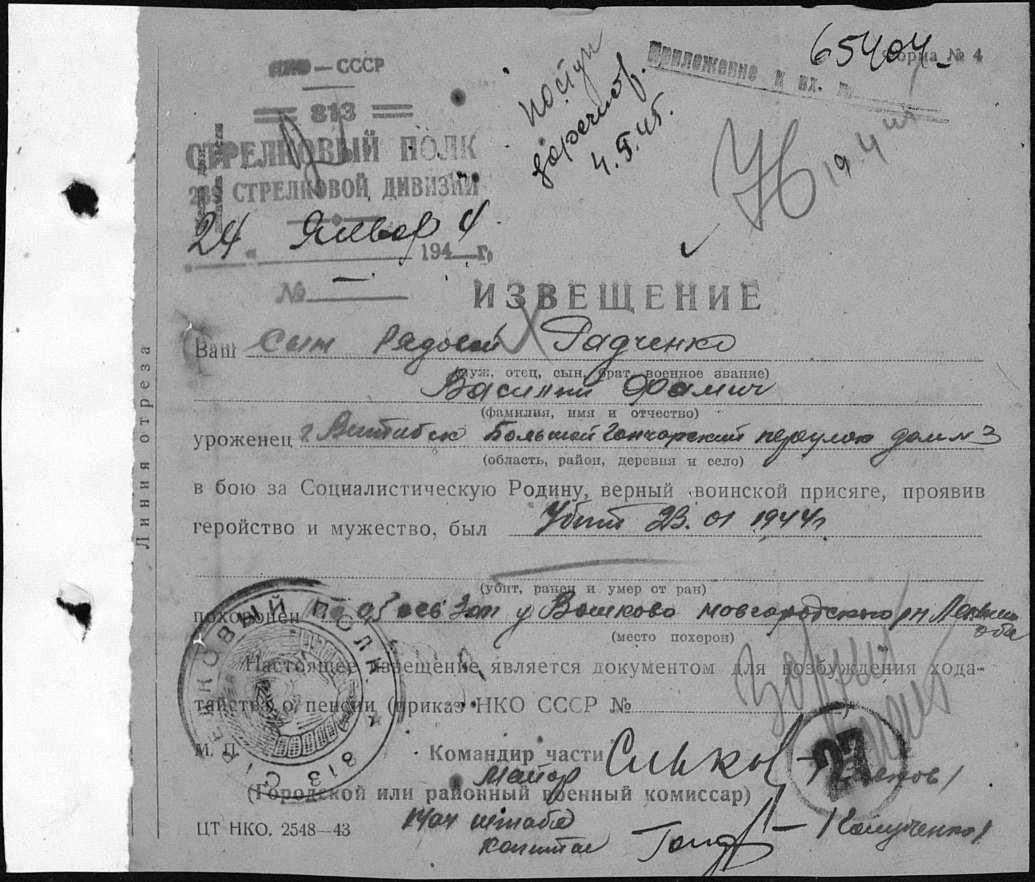 НКО — СССР
65404
Форма № 4
Приложение к вх. №
813
СТРЕЛКОВЫЙ ПОЛК
СТРЕЛКОВОЙ ДИВИЗИИ
4.5.45.
24 " Январ 1944 г.
№ —
ИЗВЕЩЕНИЕ
Ваш сын рядовой Радченко
(муж, отец, сын, брат, военное звание)
Василий Фамич
(фамилия, имя и отчество)
уроженец г. Витибск Большой Гончарский переулок дом № 3
(область, район, деревня и село)
в бою за Социалистическую Родину, верный воинской присяге, проявив
геройство и мужество, был Убит 23.01 1944 г
(убит, ранен и умер от ран)
похоронен 0,5 зап у Вашково новгородского рн
(место похорон)
Настоящее извещение является документом для возбуждения хода-
тайства о пенсии (приказ НКО СССР № )
М. П.
Командир части
Майор
27
(Городской или районный военный комиссар)
Нач штаба
капитан
ЦТ НКО. 2548—43
Линия отреза
813 СТРЕЛКОВЫЙ ПОЛК